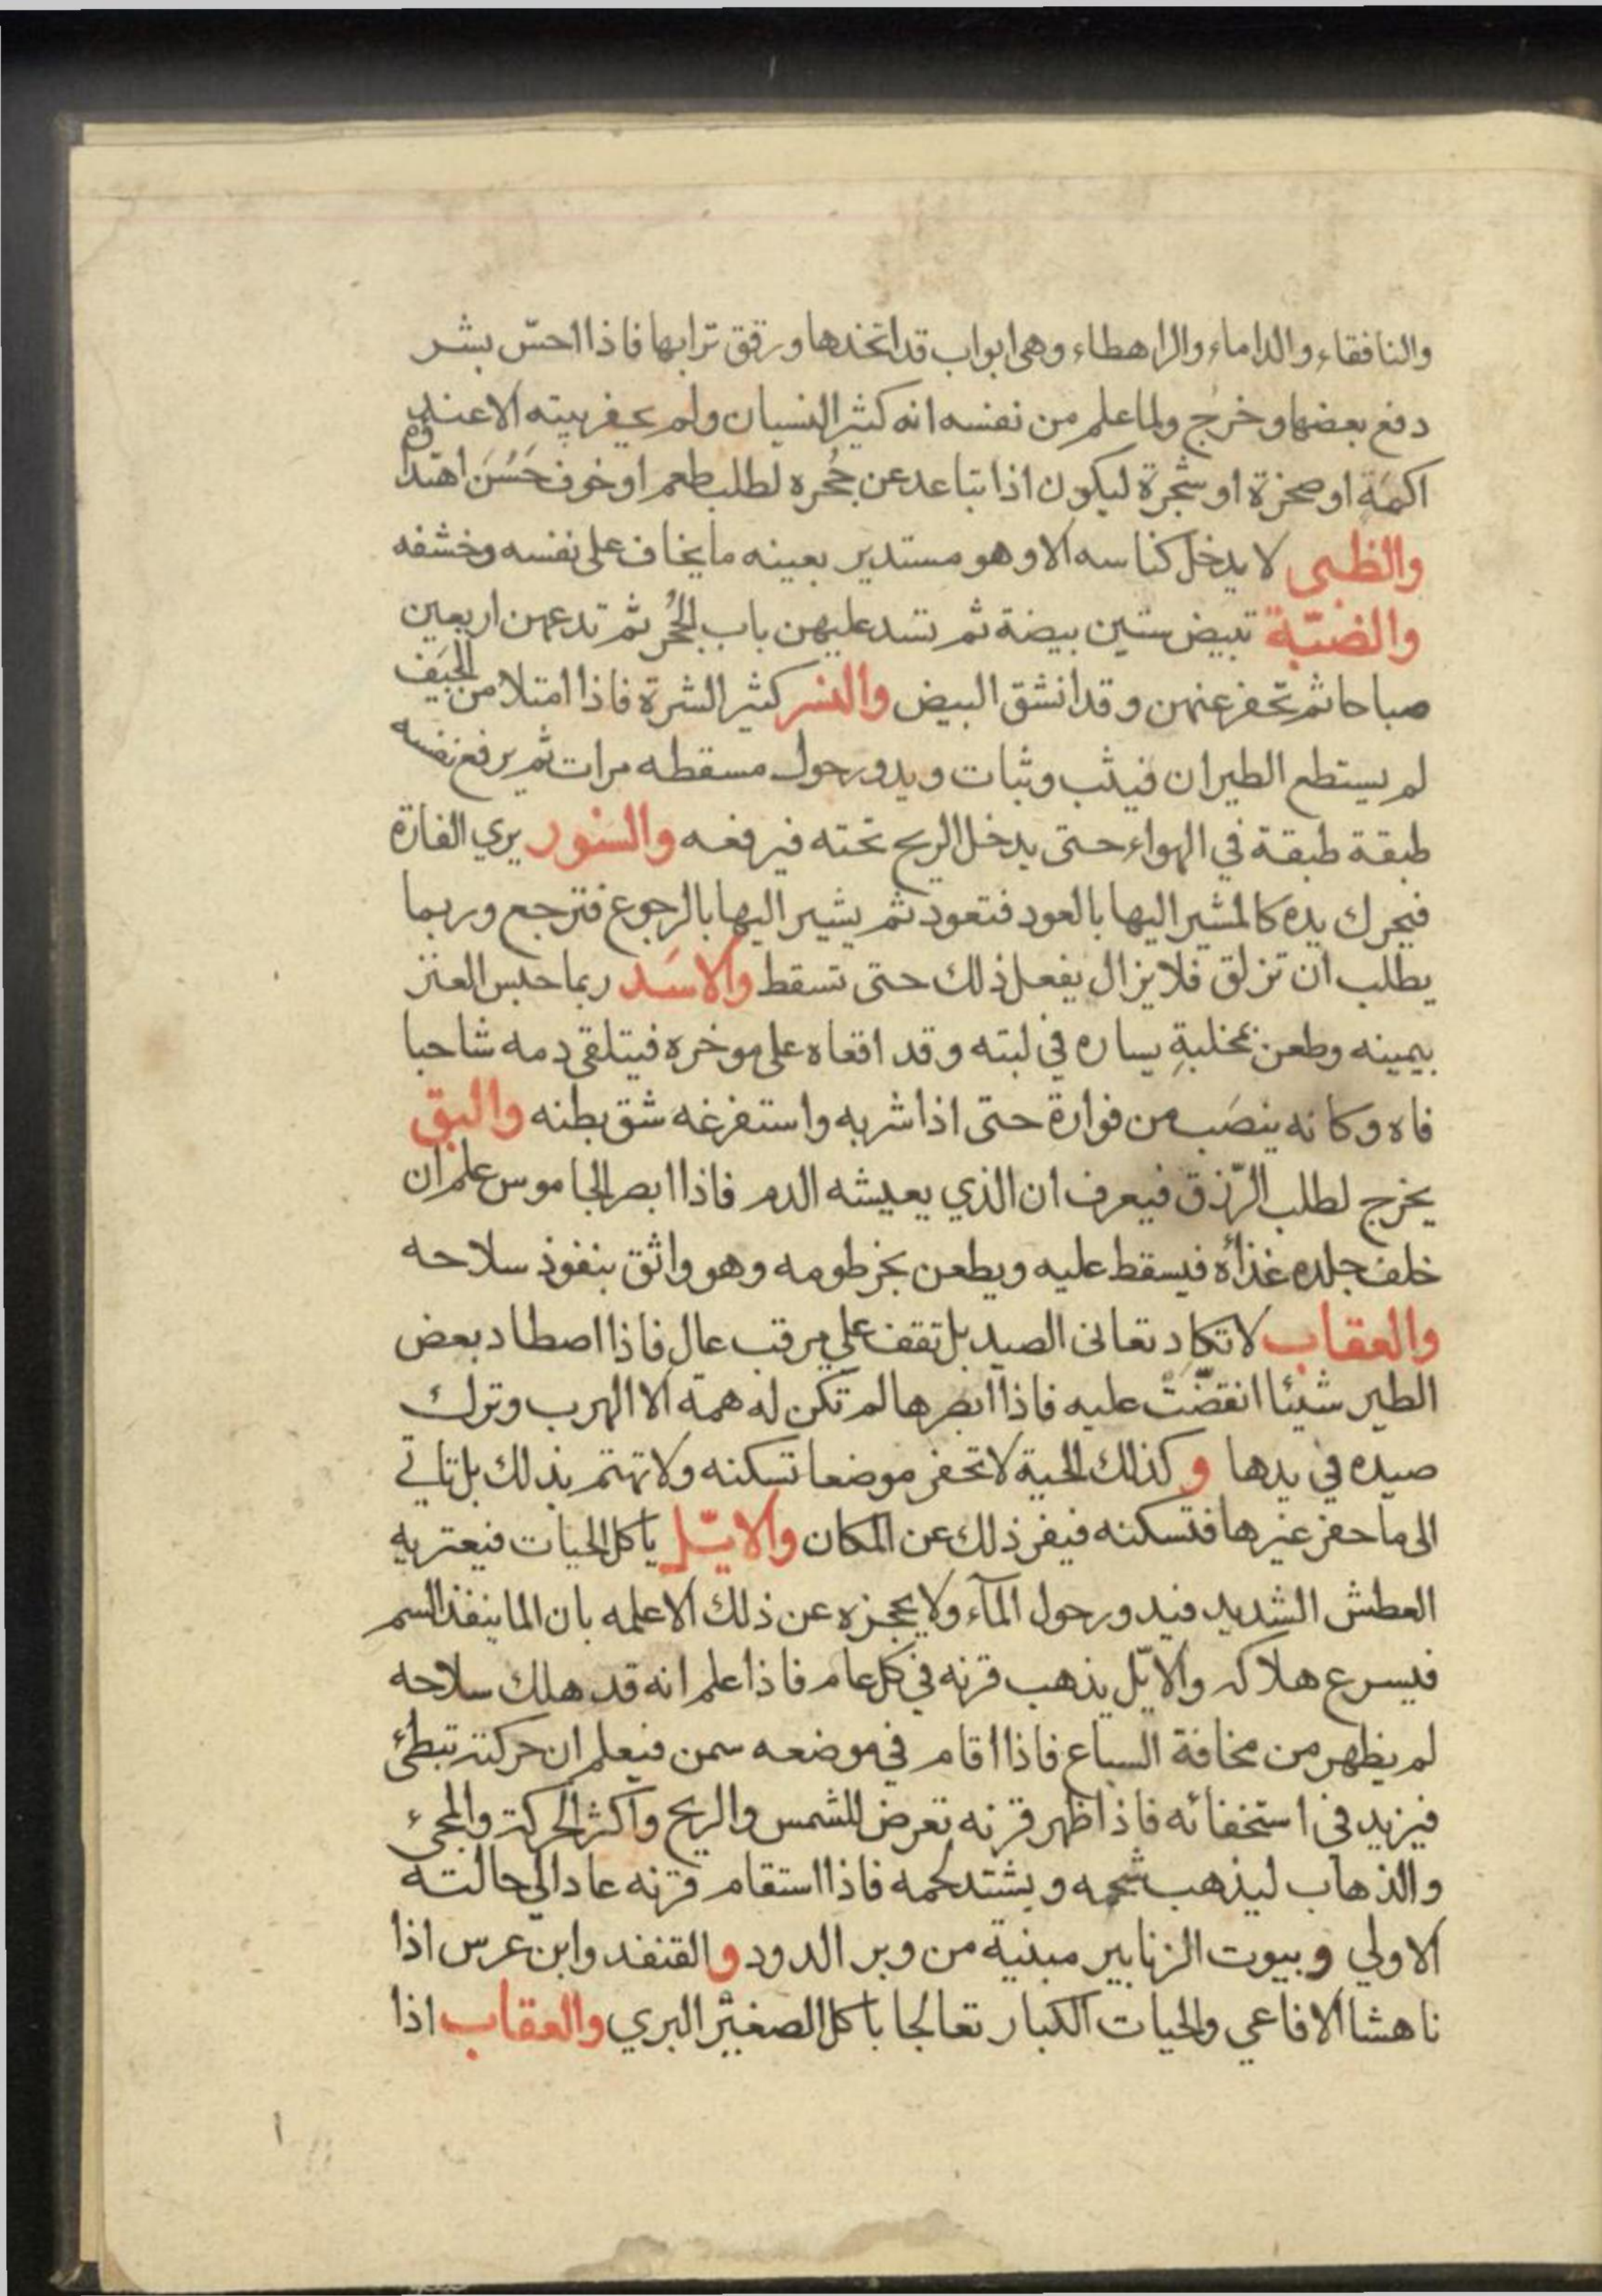 والنافقاء والداماء والراهطاء وهي ابواب قد اتخذها ورقق ترابها فاذا احسّ بشر
دفع بعضها وخرج ولما علم من نفسه انه كثير النسيان ولم يحفر بيته الا عند
اكمَة او صخرة او شجرة ليكون اذا تباعد عن جُحره لطلب طعم او خوف حَسُنَ اهتدا
والظبي لا يدخل كناسه الا وهو مستدبر بعينه ما يخاف على نفسه وخشفه
والضبّة تبيض ستين بيضة ثم تسد عليهن باب الجُحر ثم تدعهن اربعين
صباحا ثم تحفر عنهن وقد انشق البيض والنسر كثير الشرة فاذا امتلا من الجيَف
لم يستطع الطيران فيثب وثبات ويدور حول مسقطه مرات ثم يرفع نفسه
طبقة طبقة في الهواء حتى يدخل الريح تحته فيرفعه والسنور يري الفارة
فيحرك يده كالمشير اليها بالعود فتعود ثم يشير اليها بالرجوع فترجع وربما
يطلب ان تزلق فلا يزال يفعل ذلك حتى تسقط والاسَد ربما حبس العنز
بيمينه وطعن بمخلبةِ يساره في لبته وقد اقعاه على موخره فيتلقى دمه شاحبا
فاه وكانه ينصَب من فوارة حتى اذا شربه واستفرغه شق بطنه والبق
يخرج لطلب الرّزق فيعرف ان الذي يعيشه الدم فاذا ابصر الجاموس علم ان
خلف جلده غذاُه فيسقط عليه ويطعن بخرطومه وهو واثق بنفوذ سلاحه
والعقاب لا تكاد تعانى الصيد بل تقف علي مرقب عال فاذا اصطاد بعض
الطير شيئا انقضّت عليه فاذا ابصرها لم تكن له همة الا الهرب وترك
صيده في يدها وكذلك الحية لا تحفر موضعا تسكنه ولا تهتم بذلك بل تاتي
الى ما حفر غيرها فتسكنه فيفر ذلك عن المكان والايّل ياكل الحيات فيعتريه
العطش الشديد فيدور حول المآء ولا يحجزه عن ذلك الا علمه بان الما ينفذ السم
فيسرع هلاكه والايّل يذهب قرنه في كل عام فاذا علم انه قد هلك سلاحه
لم يظهر من مخافة السباع فاذا اقام في موضعه سمن فيعلم ان حركته تبطئ
فيزيد في استخفائه فاذا ظهر قرنه تعرض للشمس والريح واكثر الحركة والمجيء
والذهاب ليذهب شحمه ويشتد لحمه فاذا استقام قرنه عاد الي حالته
الاولي وبيوت الزنابير مبنية من وبر الدود والقنفد وابن عرس اذا
ناهشا الافاعي والحيات الكبار تعالجا باكل الصغير البري والعقاب اذا